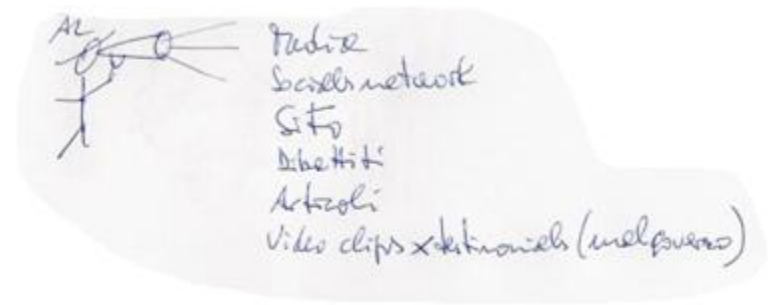 AL
Media
Socials network
Sito
Dibattiti
Articoli
Video clips x testimonials (malgoverno)